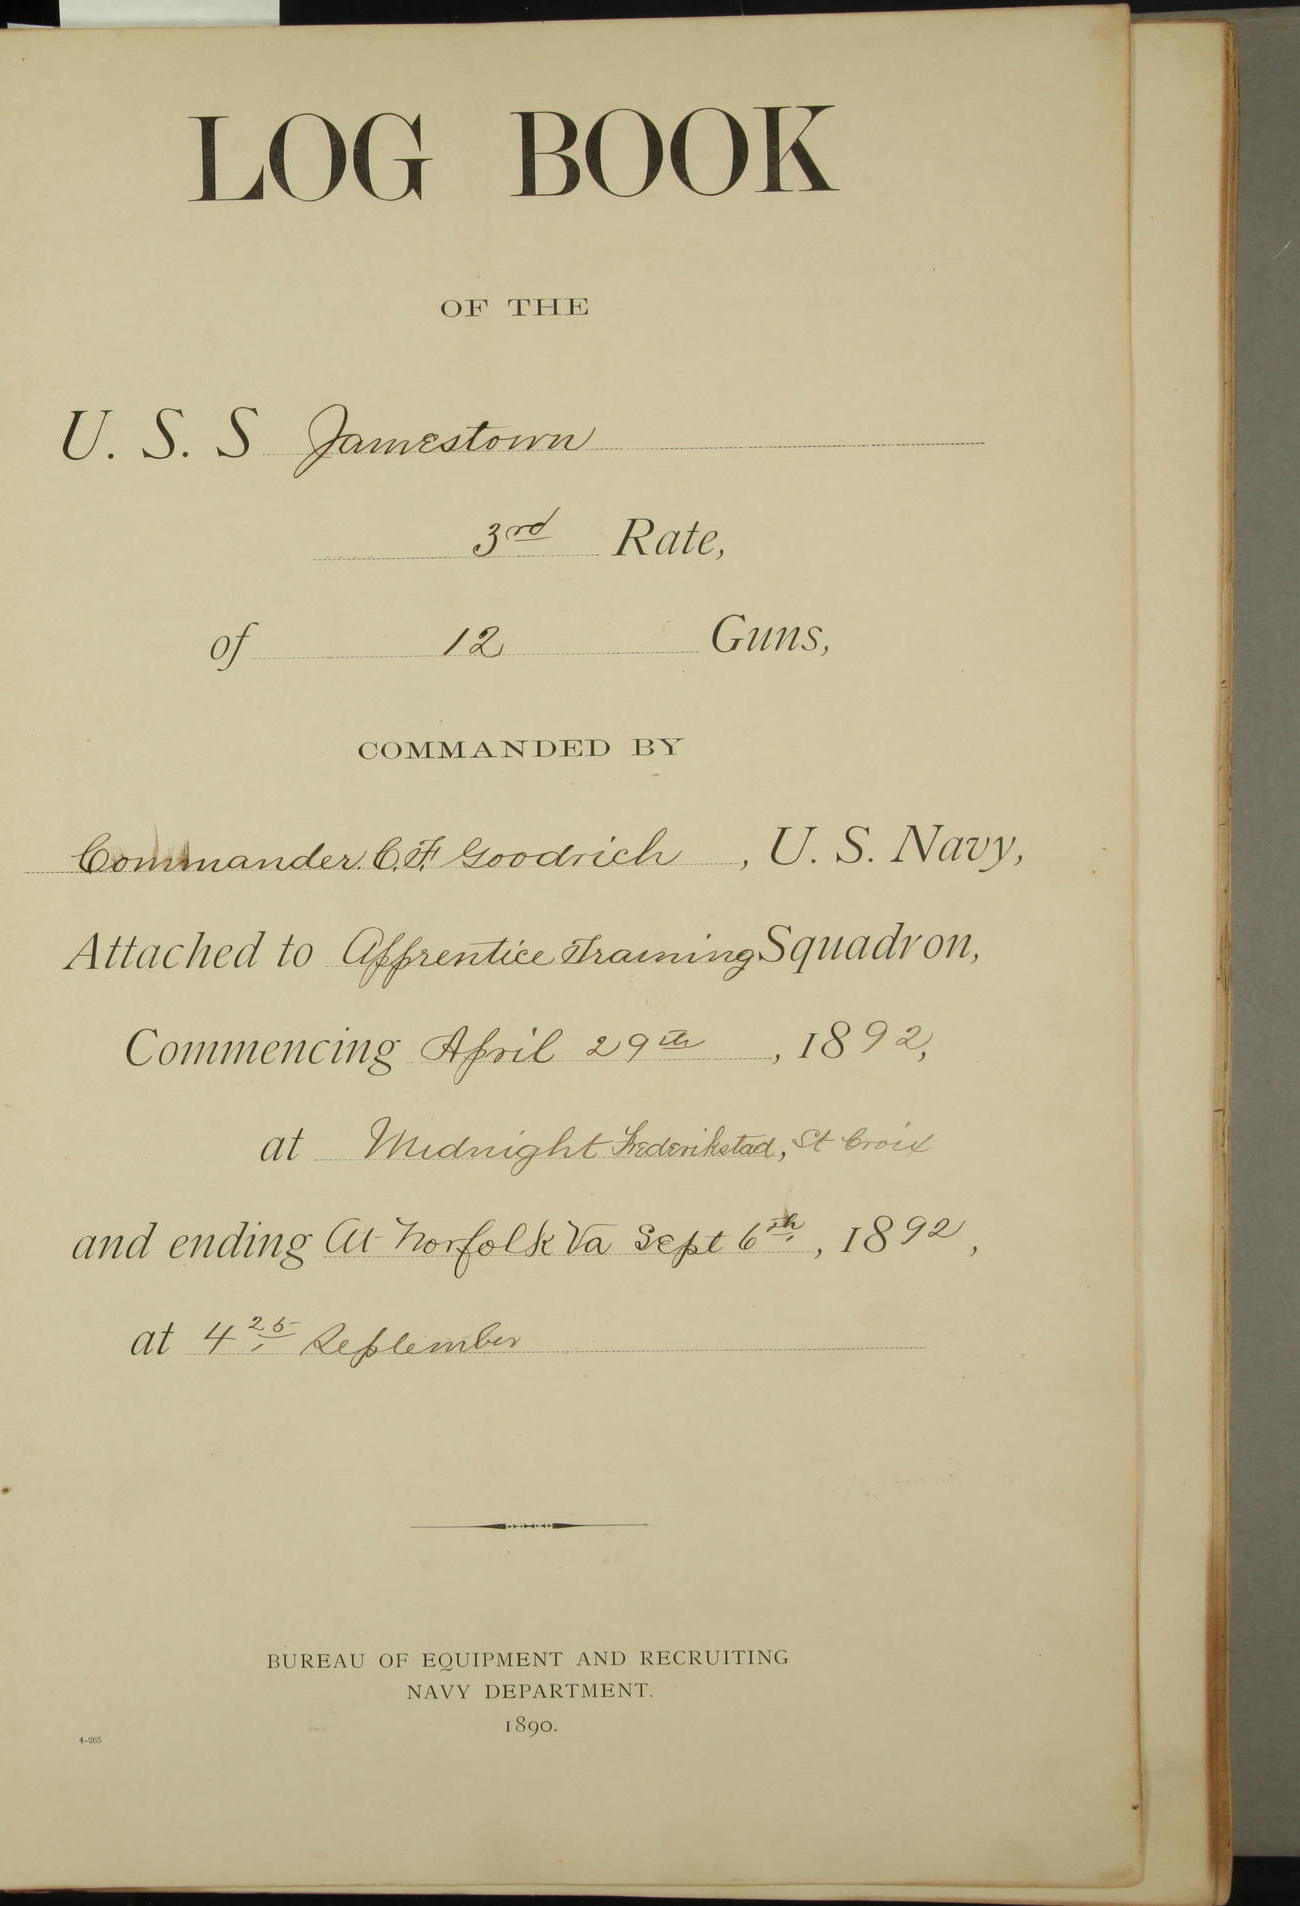 LOG BOOK
OF THE
U. S. S Jamestown
3rd Rate,
of 12 Guns,
COMMANDED BY
Commander C. F. Goodrich, U. S. Navy,
Attached to Apprentice Training Squadron,
Commencing April 29th, 1892,
at Midnight Frederikstad, St Croix
and ending At Norfolk Va Sept 6th, 1892,
at 4 25 September
BUREAU OF EQUIPMENT AND RECRUITING
NAVY DEPARTMENT.
1890.
4-265